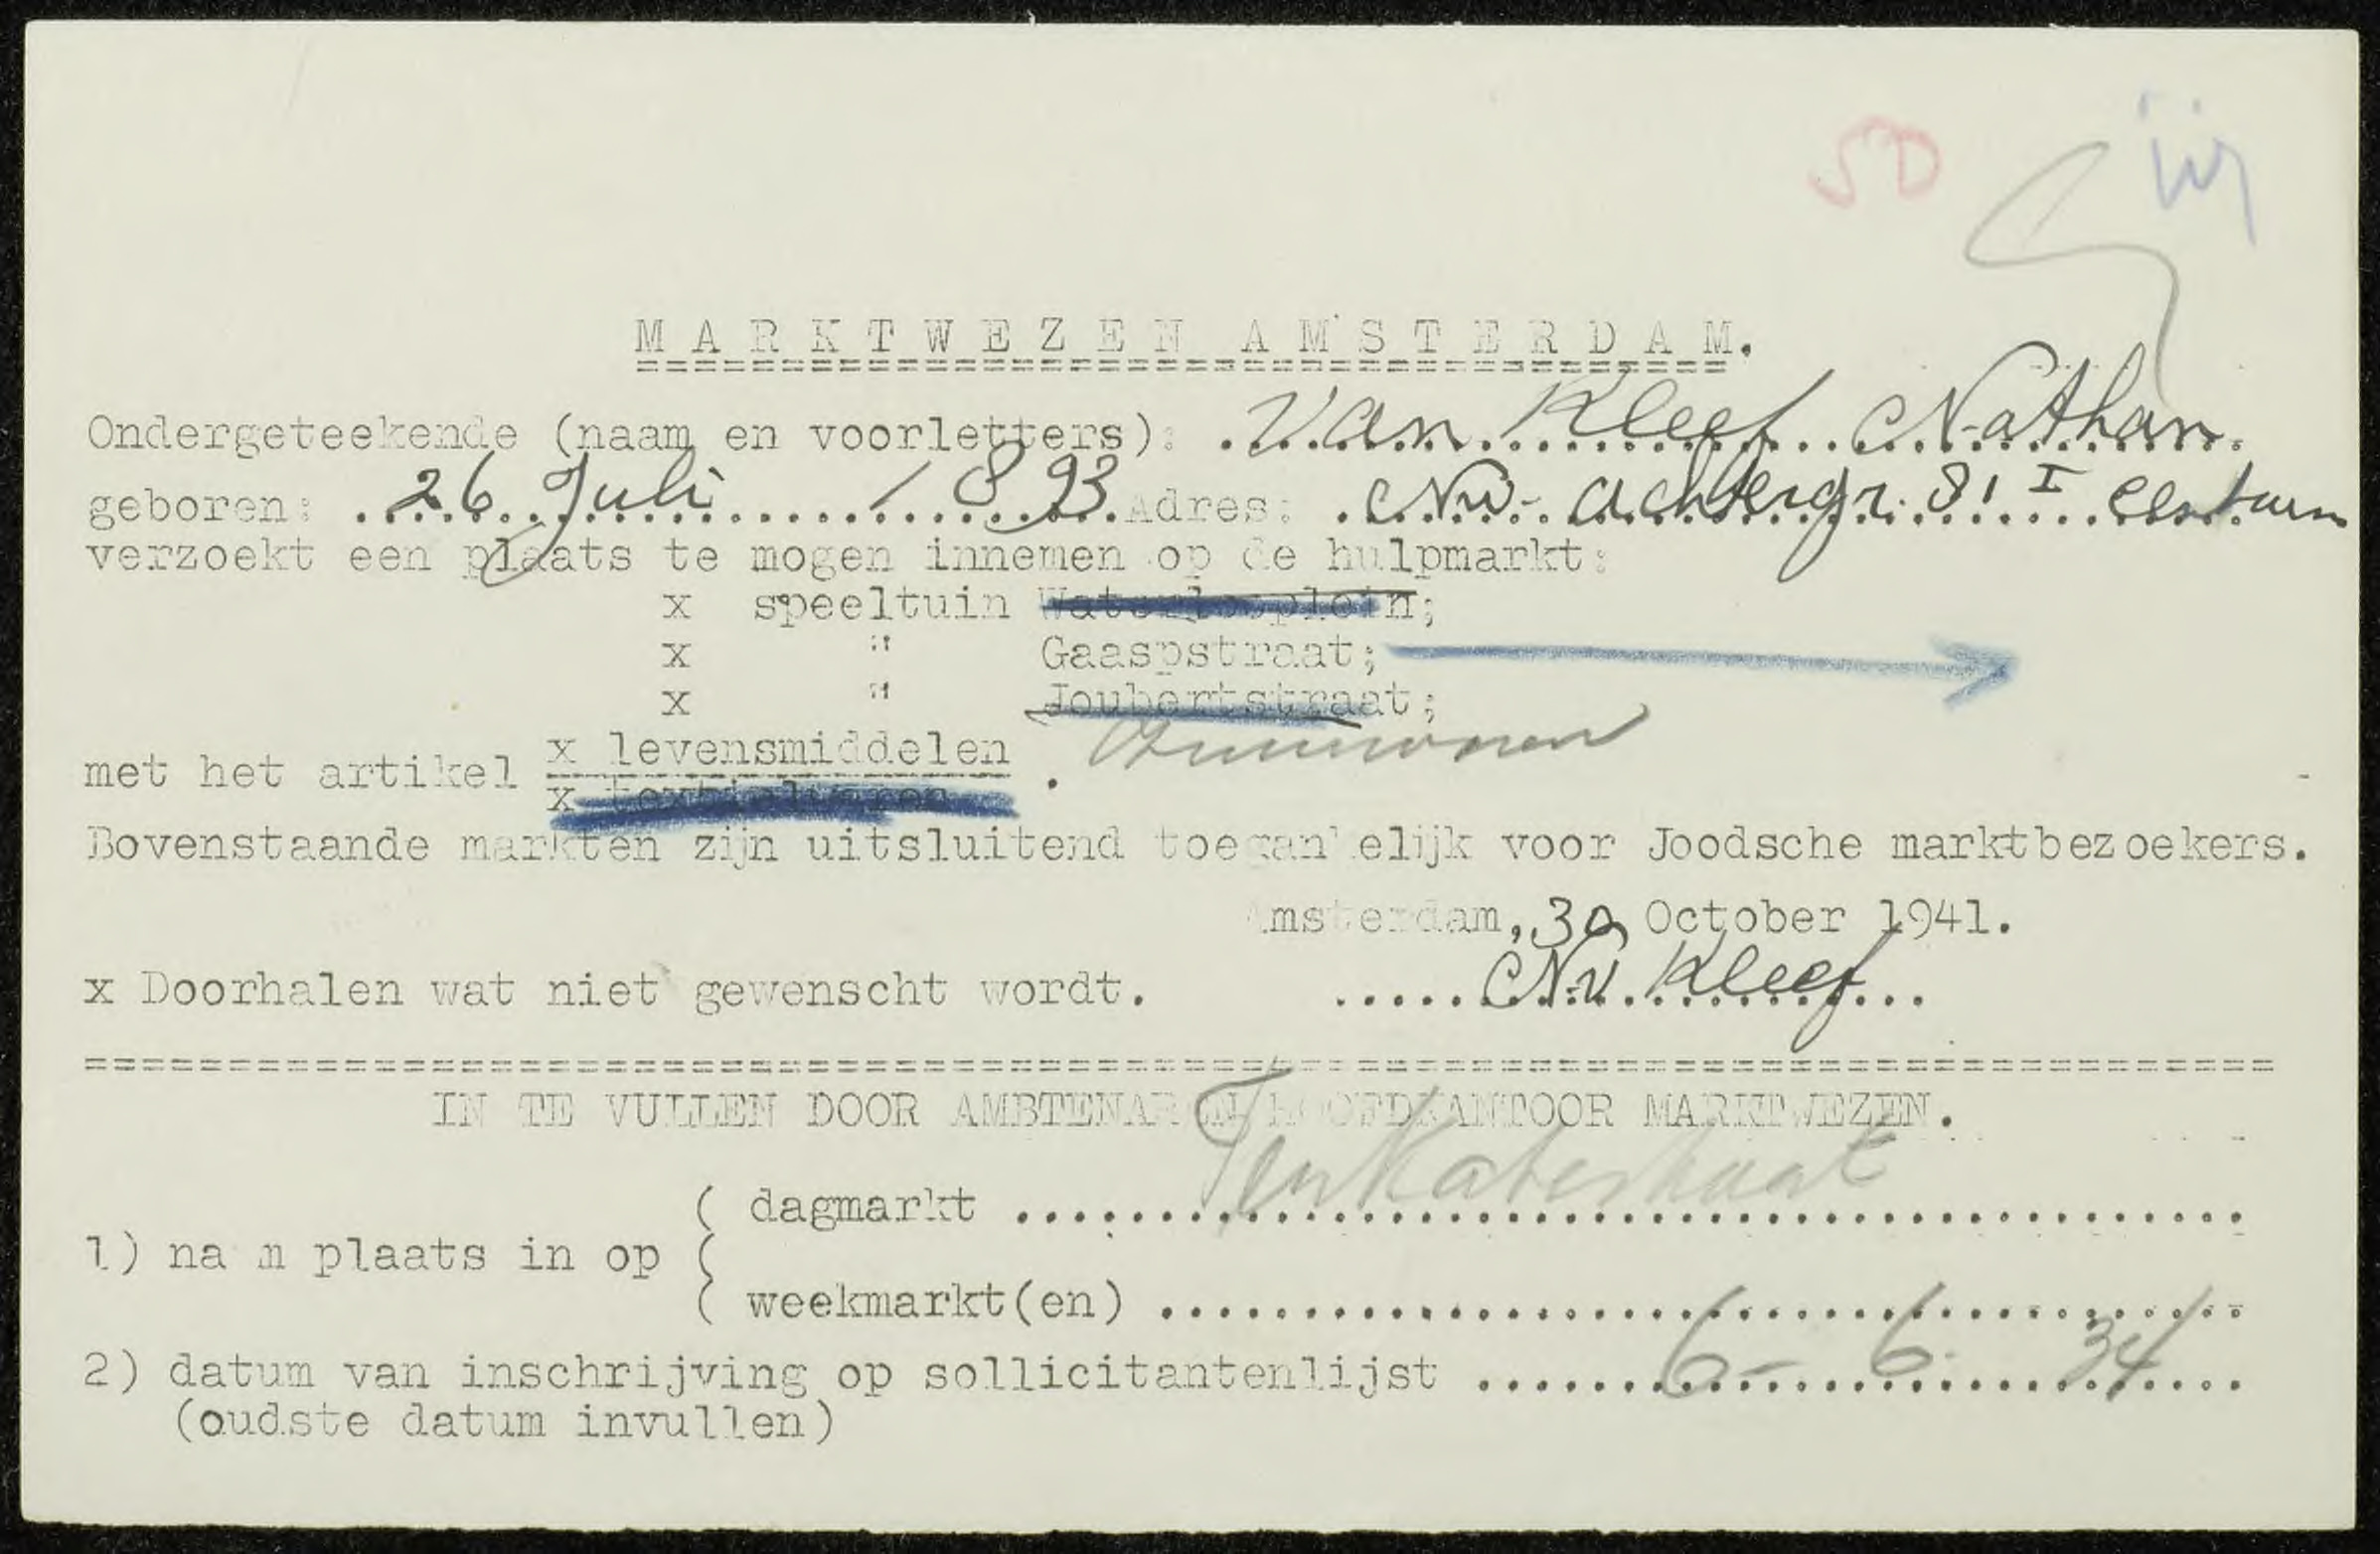 SD
M A R K T W E Z E N A M S T E R D A M.
Ondergeteekende (naam en voorletters): Van Kleef Nathan.
geboren: 26 Juli 1893 Adres: Nw. Achtergr. 81 I
verzoekt een plaats te mogen innemen op de hulpmarkt:
x speeltuin Waterlooplein;
x " Gaaspstraat;
x " Joubertstraat;
x levensmiddelen
met het artikel .
x textielwaren
Bovenstaande markten zijn uitsluitend toegankelijk voor Joodsche marktbezoekers.
Amsterdam, 30 October 1941.
x Doorhalen wat niet gewenscht wordt. N. v. Kleef
IN TE VULLEN DOOR AMBTENAREN HOOFDKANTOOR MARKTWEZEN.
( dagmarkt Ten Katestraat
1) nam plaats in op (
( weekmarkt(en)
2) datum van inschrijving op sollicitantenlijst 6 - 6 - 34
(oudste datum invullen)